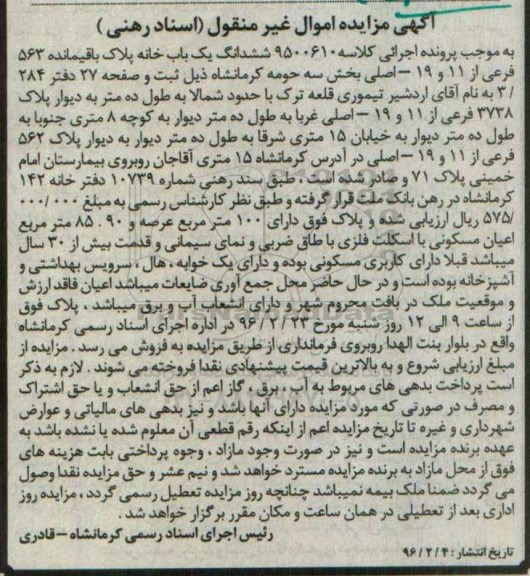 آگهی مزایده اموال غیر منقول (اسناد رهنی)
به موجب پرونده اجرائی کلاسه ۹۵۰۰۶۱۰ ششدانگ یک باب خانه پلاک باقیمانده ۵۶۳
فرعی از ۱۱ و ۱۹ – اصلی بخش سه حومه کرمانشاه ذیل ثبت و صفحه ۲۷ دفتر ۲۸۴
/ ۳ به نام آقای اردشیر تیموری قلعه ترک با حدود شمالا به طول ده متر به دیوار پلاک
۳۷۳۸ فرعی از ۱۱ و ۱۹ – اصلی غربا به طول ده متر دیوار به کوچه ۸ متری جنوبا به
طول ده متر دیوار به خیابان ۱۵ متری شرقا به طول ده متر دیوار به دیوار پلاک ۵۶۲
فرعی از ۱۱ و ۱۹ – اصلی در آدرس کرمانشاه ۱۵ متری آقاجان روبروی بیمارستان امام
خمینی پلاک ۷۱ و صادر شده است ، طبق سند رهنی شماره ۱۰۷۳۹ دفتر خانه ۱۴۲
کرمانشاه در رهن بانک ملت قرار گرفته و طبق نظر کارشناس رسمی به مبلغ ۰۰۰/۰۰۰
/۵۷۵ ریال ارزیابی شده و پلاک فوق دارای ۱۰۰ متر مربع عرصه و ۹۰ . ۸۵ متر مربع
اعیان مسکونی با اسکلت فلزی با طاق ضربی و نمای سیمانی و قدمت بیش از ۳۰ سال
میباشد قبلا دارای کاربری مسکونی بوده و دارای یک خوابه ، هال ، سرویس بهداشتی و
آشپزخانه بوده است و در حال حاضر محل جمع آوری ضایعات میباشد اعیان فاقد ارزش
و موقعیت ملک در بافت محروم شهر و دارای انشعاب آب و برق میباشد ، پلاک فوق
از ساعت ۹ الی ۱۲ روز شنبه مورخ ۹۶/۲/۲۳ در اداره اجرای اسناد رسمی کرمانشاه
واقع در بلوار بنت الهدا روبروی فرمانداری از طریق مزایده به فروش می رسد . مزایده از
مبلغ ارزیابی شروع و به بالاترین قیمت پیشنهادی نقدا فروخته می شوند . لازم به ذکر
است پرداخت بدهی های مربوط به آب ، برق ، گاز اعم از حق انشعاب و یا حق اشتراک
و مصرف در صورتی که مورد مزایده دارای آنها باشد و نیز بدهی های مالیاتی و عوارض
شهرداری و غیره تا تاریخ مزایده اعم از اینکه رقم قطعی آن معلوم شده یا نشده باشد به
عهده برنده مزایده است و نیز در صورت وجود مازاد ، وجوه پرداختی بابت هزینه های
فوق از محل مازاد به برنده مزایده مسترد خواهد شد و نیم عشر و حق مزایده نقدا وصول
می گردد ضمنا ملک بیمه نمیباشد چنانچه روز مزایده تعطیل رسمی گردد ، مزایده روز
اداری بعد از تعطیلی در همان ساعت و مکان مقرر برگزار خواهد شد .
رئیس اجرای اسناد رسمی کرمانشاه – قادری
تاریخ انتشار : ۹۶/۲/۴